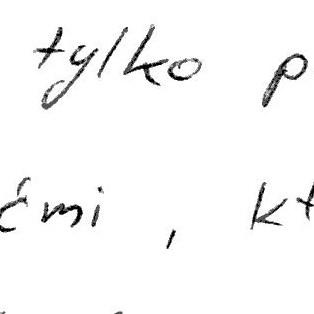 tylko p
ćmi , kt